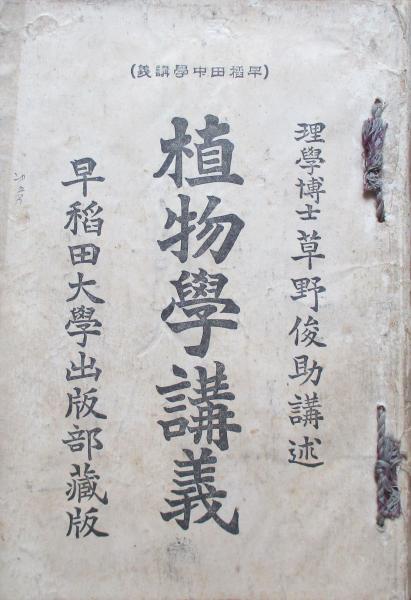 (早稻田中學講義)
理學博士草野俊助講述
植物學講義
早稻田大學出版部藏版